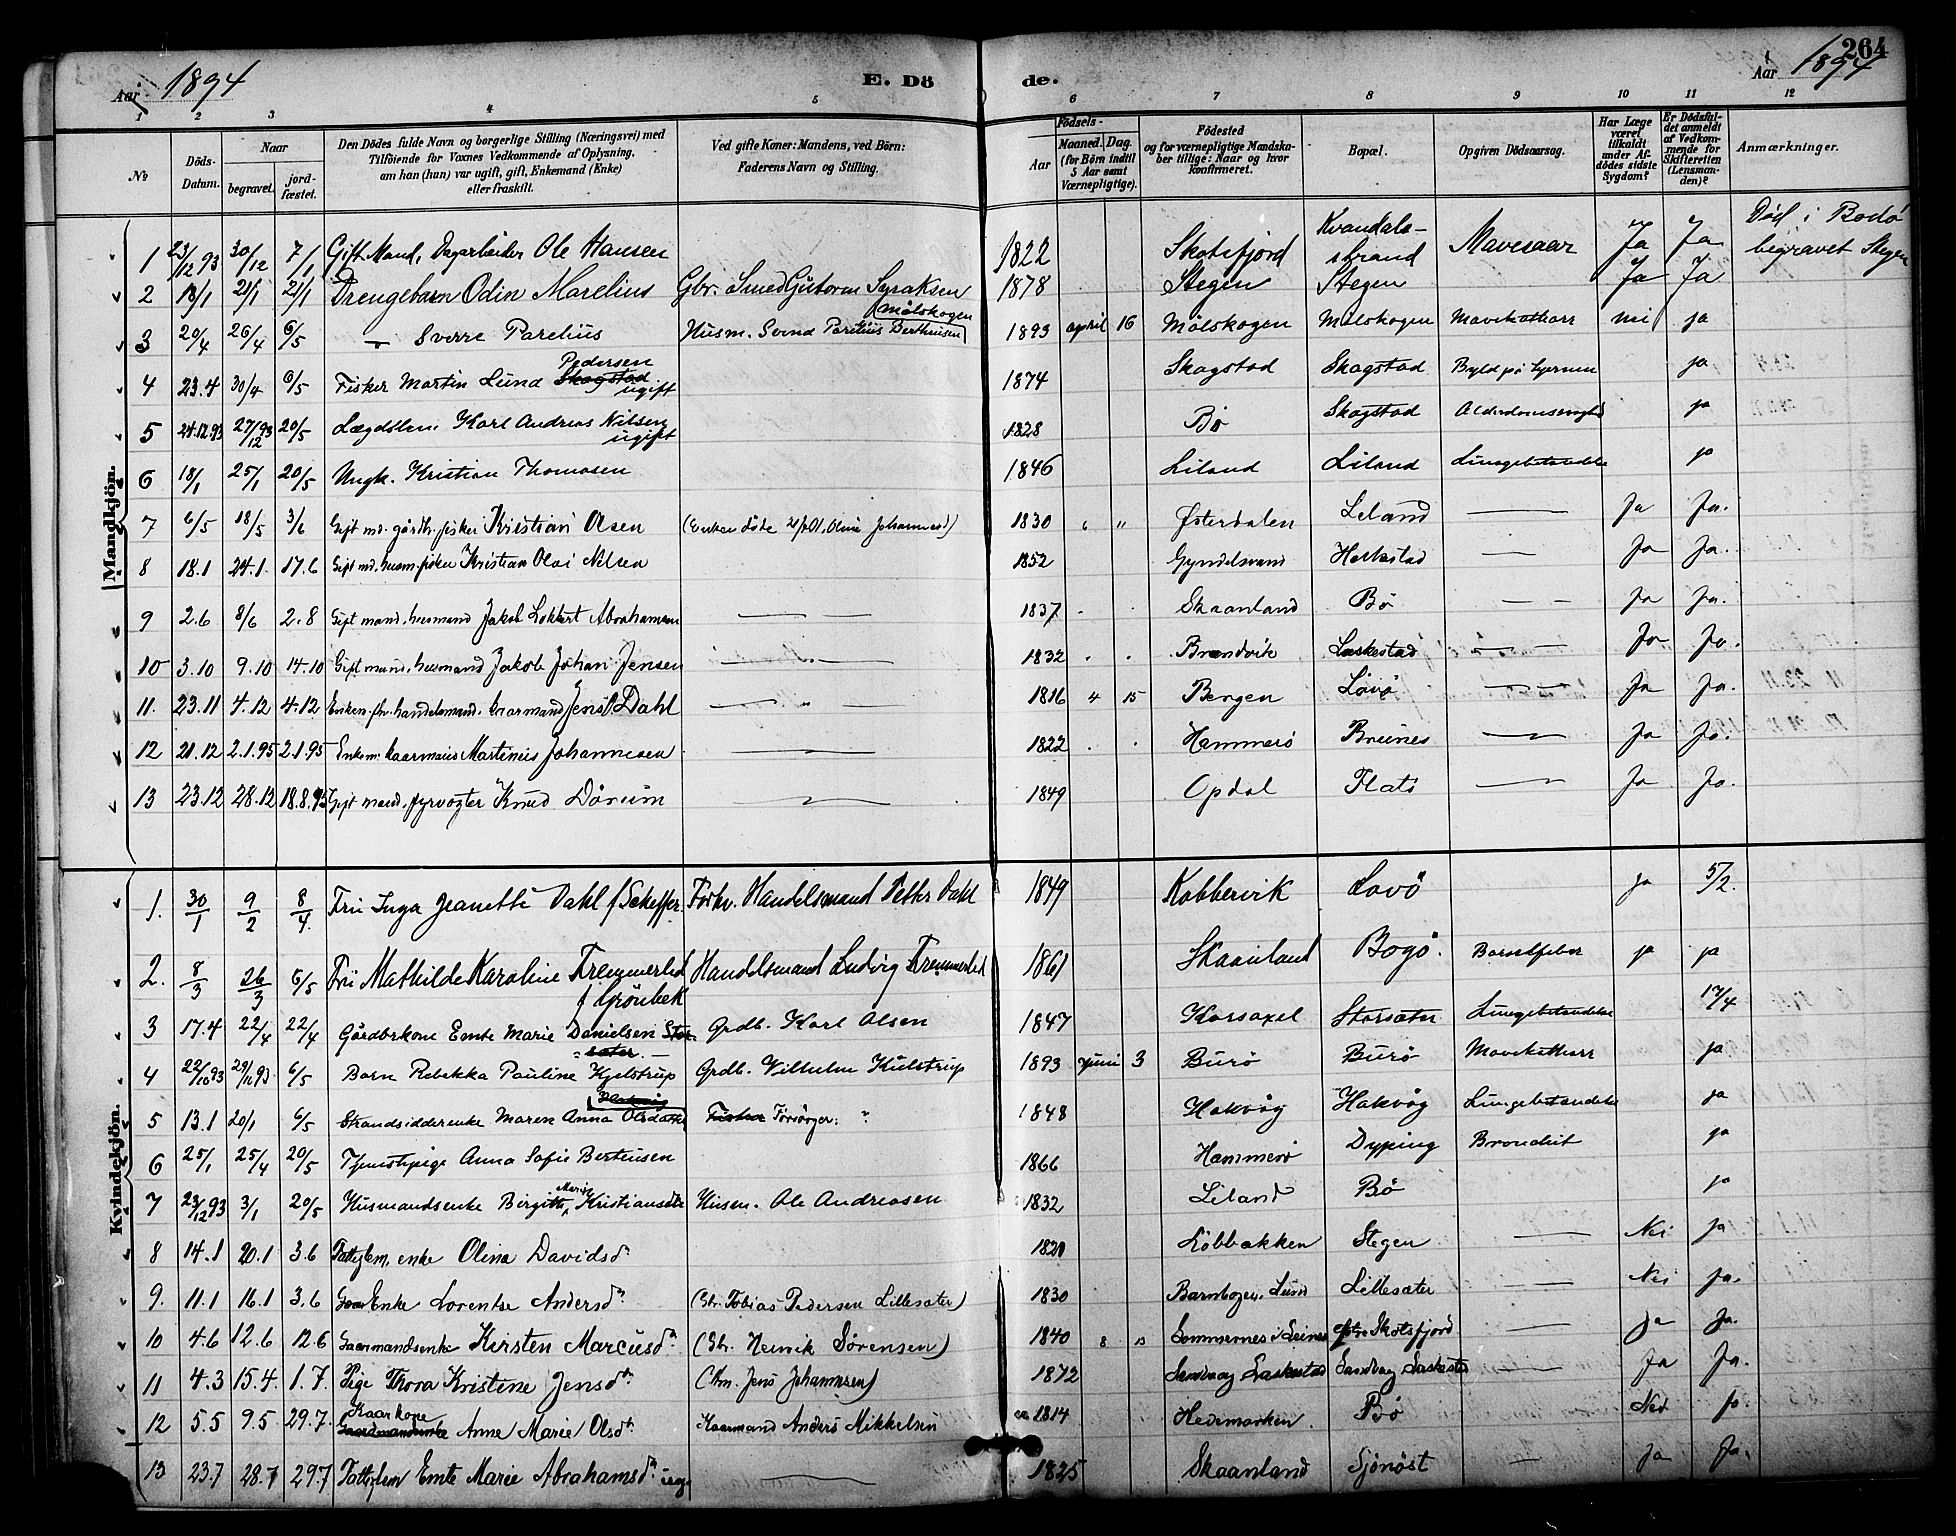 264
Aar 1894 E. Dö de. Aar 1894
1 2 3 4 5 6 7 8 9 10 11 12
№ Döds-Datum. Naar begravet. jord-fæstet. Den Dödes fulde Navn og borgerlige Stilling (Næringsvei) med Tilföiende for Voxnes Vedkommende af Oplysning, om han (hun) var ugift, gift, Enkemand (Enke) eller fraskilt. Ved gifte Koner: Mandens, ved Börn: Faderens Navn og Stilling. Födsels- Aar Maaned. Dag. (for Börn indtil 5 Aar samt Værnepligtige). Födested og for værnepligtige Mandskaber tillige: Naar og hvor konfirmeret. Bopæl. Opgiven Dödsaarsag. Har Læge været tilkaldt under Afdödes sidste Sygdom? Er Dödsfaldet anmeldt af Vedkommende for Skifteretten (Lensmanden)? Anmærkninger.
Mandkjön.
1 23/12 93 30/12 7/1 Gift Mand, Dagarbeider Ole Hansen 1822 Skotsfjord Kvandalsstrand Mavesaar Ja Ja Död i Bodö begravet Stegen
2 18/1 21/1 21/1 Drengebarn Odin Marelius Gbr. Smed Gustorm Syraksen 1878 Stegen Stegen Ja Ja
3 20/4 26/4 6/5 " Sverre Parelius Husm. Svend Parelius Berthusen Mölskogen 1893 april 16 Mölskogen Mölskogen Mavekatharr nei ja
4 23.4 30/4 6/5 Fisker Martin Lund Skogstad Pedersen ugift 1874 Skogstad Skogstad Byld på hjernen ja
5 24.12.93 27/12 93 20/5 Lægdslem Karl Andreas Nilsen ugift 1828 Bö Skogstad Alderdomssvaghed ja
6 18/1 25/1 20/5 Ungk. Kristian Thomasen 1846 Liland Liland Lungebetændelse ja
7 6/5 18/5 3/6 Gift md. gårdbr. fisker Kristian Olsen 1830 Østerdalen Leland — Ja Ja.
8 18.1 24.1. 17.6 Gift md. husm. fisker Kristian Olai Nilsen 1852 Gyndelsvand Horkestad — Ja Ja.
9 2.6 8/6 2.8 Gift mand. husmand Jakob Lokkert Abrahamsen — 1837 Skaanland Bö — Ja Ja.
10 3.10 9.10 14.10 Gift mand. husmand Jakob Johan Jensen — 1832 Brændvik Laskestad — Ja Ja.
11. 23.11 4.12 4.12 Enkem. fhv. handelsmand. kaarmand Jens Dahl — " — 1816 4 15 Bergen Lövö — Ja Ja.
12 21.12 2.1.95 2.1.95 Enkem. kaarmand Martinus Johannesen — 1822 Hammerö Breines — Ja Ja.
13 23.12 28.12 18.8.95 Gift mand. fyrvogter Knud Dörum — 1849 Opdal Flatö — Ja Ja.
Kvindekjön.
1. 30/1 9/2 8/4. Fru Inga Jeanette Dahl f Scheffer. Forhv. Handelsmand Petter Dahl 1849 Kobbervik Lovö ja 5/2.
2. 8/3 26/3 6/5 Fru Mathilde Karoline Fremmerlid f Grönbek Handelsmand Ludvig Fremmerlid 1861 Skaanland Bogö. Barselfeber ja ja
3 17.4 22/4 22/4 Gårdbrkone Emte Marie Danielsen Storsæter — Grdb. Karl Olsen 1847 Korsaxel Storsæter Lungebetændelse 17/4
4 22/10 93 29/10 93 6/5 Barn Rebekka Pauline Kjelstrup Grdb. Vilhelm Kjelstrup 1893 juni 3 Burö Burö Mavekatharr ja
5 13.1 20/1 6/5 Strandsidderenke Maren Anna Olsdatter Forsörger: " 1848 Hakvåg Hakvåg Lungebetændelse ja
6 25/1 25/4 20/5 Tjenstepige Anna Sofie Bertensen 1866 Hammerö Dyping Bronchit ja
7 23/12 93 3/1 20/5 Husmandsenke Birgitte Marie Kristiansdtr Husm. Ole Andreasen 1832 Liland Bö ja
8 14.1 20.1 3.6 Fattiglem, enke Olina Davidsd. 1821 Löbbakken Stegen — Nei Ja
9. 11.1 16.1 3.6 Enke Lorentse Andersd. (Gbr. Tobias Pedersen Lillesæter) 1830 Barnhogen, Lund Lillesæter — Nei Ja.
10 4.6 12.6 12.6 Gaarmandsenke Kirsten Marcusd. (Gbr. Henrik Sörensen) 1840 8 Sommernes i Leines Skotsfjord — Ja Ja.
11 4.3 15.4. 1.7. Pige Thora Kristine Jensd. (Hm. Jens Johannesen) 1872 Sandvaag Laskestad Sandvaag Laskestad — Ja Ja.
12 5.5 9.5 29.7. Kaarkone Anne Marie Olsd. Kaarmand Anders Mikkelsen ca 1814 Hedemarken. Bö Nei Jo
13 23.7 28.7 29.7 Fattiglem Emte Marie Abrahamsd. — 1825 Skaanland Sjönöst — Ja Ja.